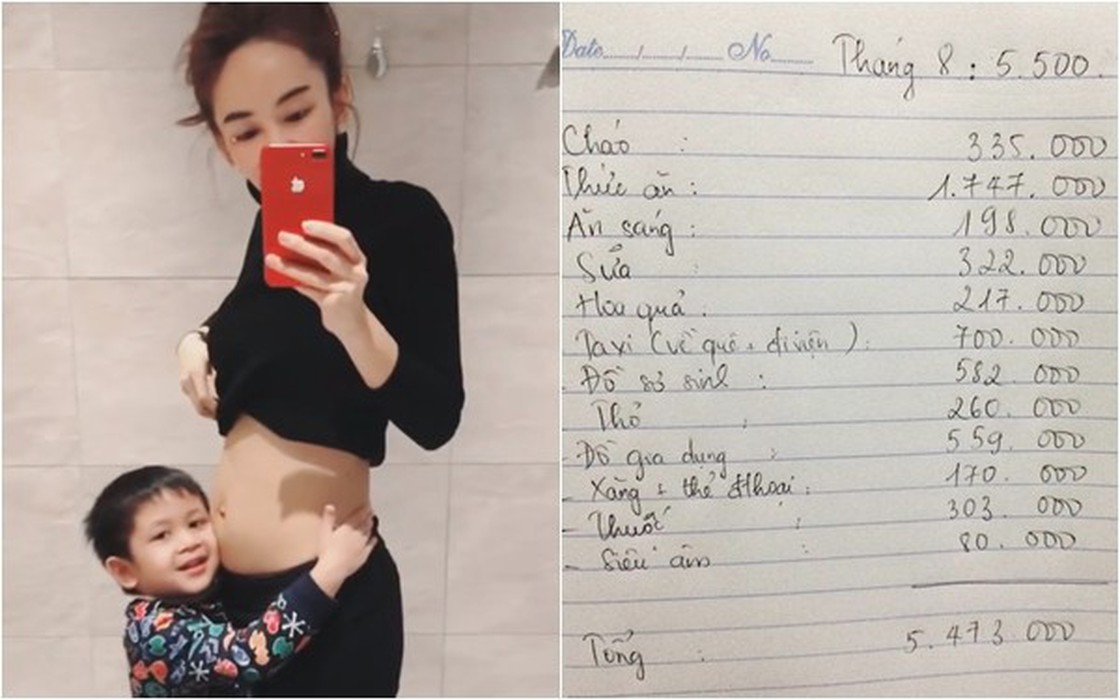 Date...../...../..... No.......
Tháng 8 : 5.500.
Cháo : 335.000
Thức ăn : 1.747.000
Ăn sáng : 198.000
Sữa : 322.000
Hoa quả : 217.000
Taxi (về quê + đi viện) : 700.000
- Đồ sơ sinh : 582.000
Thỏ : 260.000
- Đồ gia dụng : 559.000
- Xăng + thẻ đthoại : 170.000
- Thuốc : 303.000
- Siêu âm : 80.000
Tổng : 5.473.000